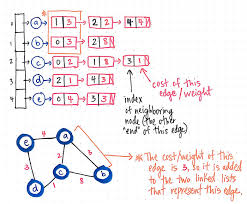 0 a 1 3 2 2 4 4
1 b 0 3 2 8
2 c 0 2 1 8 3 1
3 d 2 1 4 3
4 e 0 4 3 3
cost of this
edge/weight
index
of neighboring
node (the other
"end" of this edge)
a
e 4 3
3 2
c 8 b
1
d
** The cost/weight of this
edge is 3, so it is added
to the two linked lists
that represent this edge.